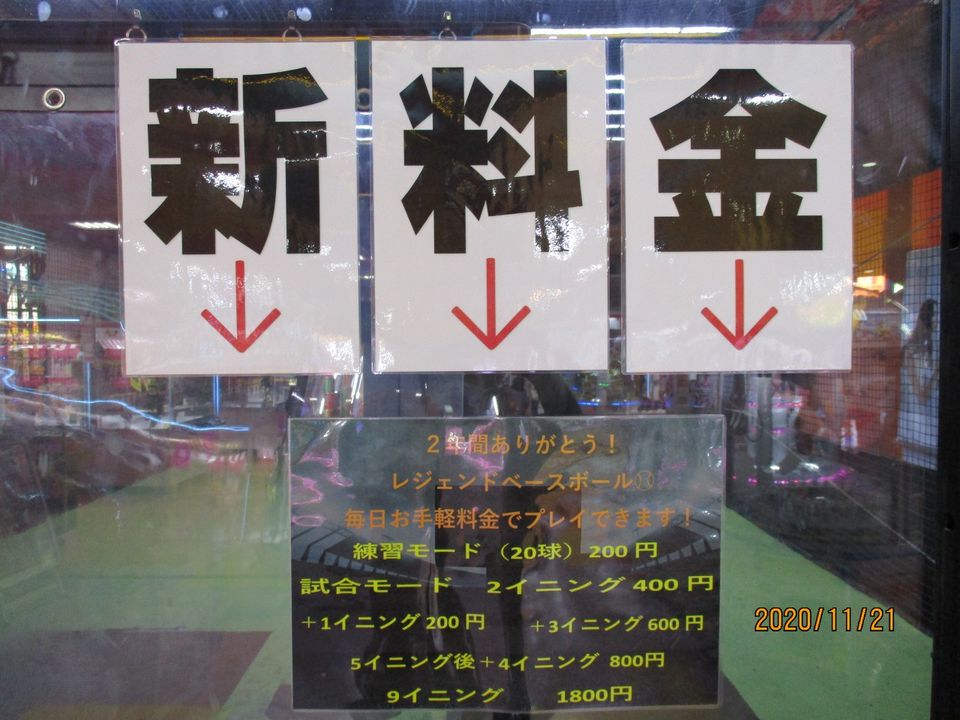 新料金
↓ ↓ ↓
2年間ありがとう！
レジェンドベースボール⚾
毎日お手軽料金でプレイできます！
練習モード（20球）200円
試合モード 2イニング400円
＋1イニング200円 ＋3イニング600円
5イニング後＋4イニング 800円
9イニング 1800円
2020/11/21